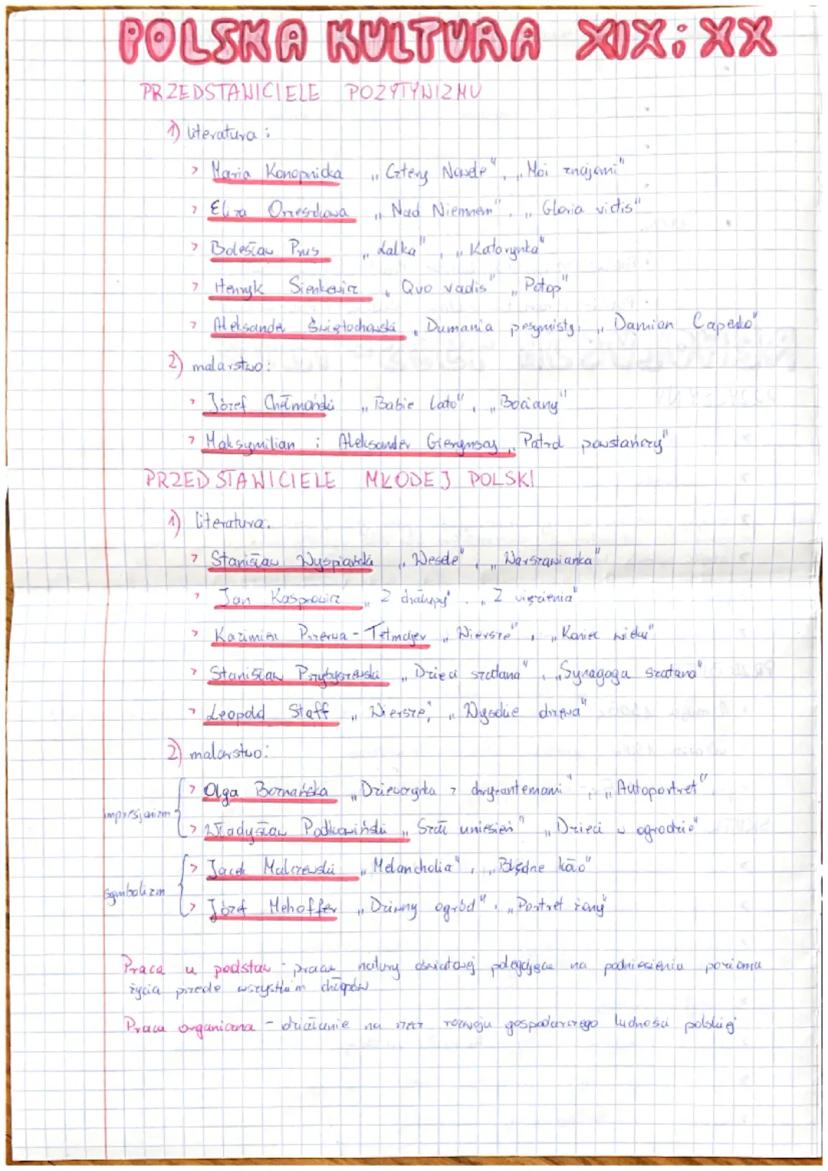 POLSKA KULTURA XIX i XX
PRZEDSTAWICIELE POZYTYWIZMU
1) literatura:
> Maria Konopnicka „Cztery Nowele", „Moi znajomi"
> Eliza Orzeszkowa „Nad Niemnem", „Gloria victis"
> Bolesław Prus „Lalka", „Katarynka"
> Henryk Sienkiewicz „Quo vadis" „Potop"
> Aleksander Świętochowski „Dumania pesymisty, „Damian Capenko"
2) malarstwo:
> Józef Chełmoński „Babie lato", „Bociany"
> Maksymilian i Aleksander Gierymscy „Patrol powstańczy"
PRZEDSTAWICIELE MŁODEJ POLSKI
1) literatura.
> Stanisław Wyspiański „Wesele", „Warszawianka"
> Jan Kasprowicz „Z chałupy", „Z więzienia"
> Kazimierz Przerwa-Tetmajer „Wiersze", „Koniec wieku"
> Stanisław Przybyszewski „Dzieci szatana", „Synagoga szatana"
> Leopold Staff „Wiersze", „Wysokie drzewa"
2) malarstwo:
impresjonizm
> Olga Boznańska „Dziewczynka z chryzantemami", „Autoportret"
> Władysław Podkowiński „Szał uniesień" „Dzieci w ogrodzie"
symbolizm
> Jacek Malczewski „Melancholia", „Błędne koło"
> Józef Mehoffer „Dziwny ogród", „Portret żony"
Praca u podstaw - praca natury oświatowej polegająca na podniesieniu poziomu
życia przede wszystkim chłopów
Praca organiczna - działanie na rzecz rozwoju gospodarczego ludności polskiej